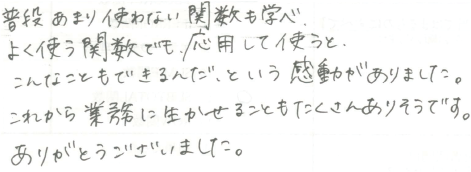 普段あまり使わない関数も学べ、
よく使う関数でも、応用して使うと、
こんなこともできるんだ、という感動がありました。
これから業務に生かせることもたくさんありそうです。
ありがとうございました。